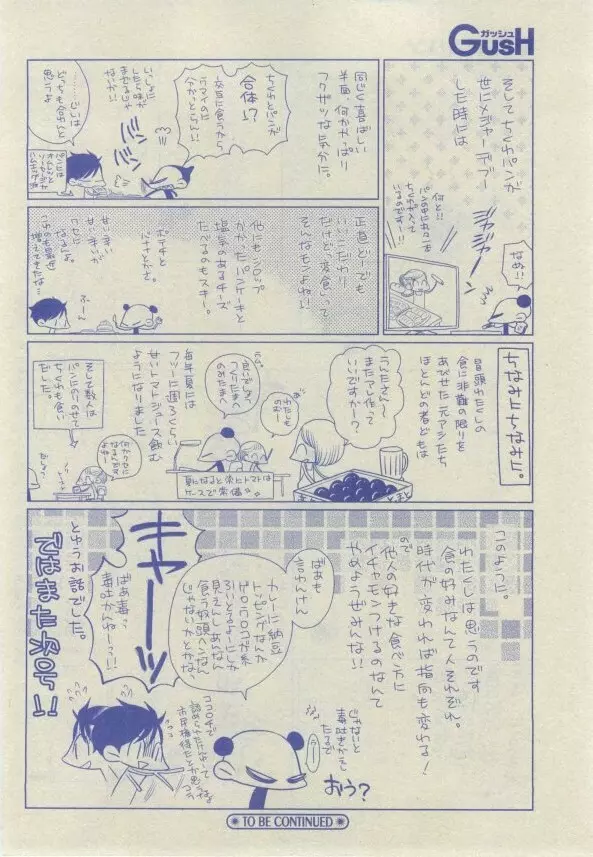 ガッシュ
GUSH
そしてちくわパンが
世にメジャーデブー
した時には
ジャジャーン
何と!!
パンの中にちくわが
入って
いるのですー!!
なぬ!!
同じく喜ばしい
半面、何かやっぱり
フクザツな気分だ。
ちくわとパンが
合体!?
次に食うから
ウマイのに
分かっとらん!!
いっしょに
したら味が
まざるじゃ
ないか!
どっちも合うと
思うよ
正直どーでも
いいこだわり
だけど、変食って
そんなモンよね!!
他にもシロップ
かかったパンケーキと
塩気のあるチーズ
たべるのもスキー。
ポテチと
バナナとかさ。
甘い辛い
甘い辛いが
クセに
なるじょ。
ふーん
ちなみにちなみに。
冒頭わたくしの
食に非難の限りを
あびせた元アシたち
ほとんどの者どもは
うんたさん〜
またアレ作って
いいですかー?
わたしも
のむー
良いでしょう
つくりたまへ
のみたまへ
毎年夏には
フツーに週3くらい
甘いトマトジュース飲む
ようになりました
夏になると常にトマトは
ケースで常備。
とまと
そして数人は
パンにのりのせて
ちくわも食い
だした。
何かクセに
なるんだよ
ねー
このように。
わたくしは思うのです
食の好みなんて人それぞれ。
時代が変われば指向も変わる!
ので
他人の好きな食べ方に
イチャモンつけるのなんて
やめようぜみんな!!
じゃないと
毒吐きかえし
たるで
おう?
ばあも
言わんさん
カレーに納豆
トッピングなんか
ゲロウロコが糸
ろいとるよーにしか
見えんしあんなん
食う奴頭ヘンなん
じゃないかとかな
キャーッ
ばあ毒っ
毒吐かんねーっ!!
とゆうお話でした。
ではまた次号!!
TO BE CONTINUED